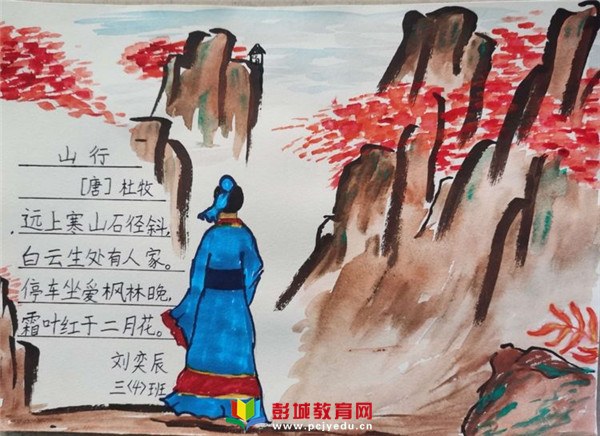 山行
[唐]杜牧
远上寒山石径斜,
白云生处有人家。
停车坐爱枫林晚,
霜叶红于二月花。
刘奕辰
三〈4〉班
彭城教育网
www.pcjyedu.cn